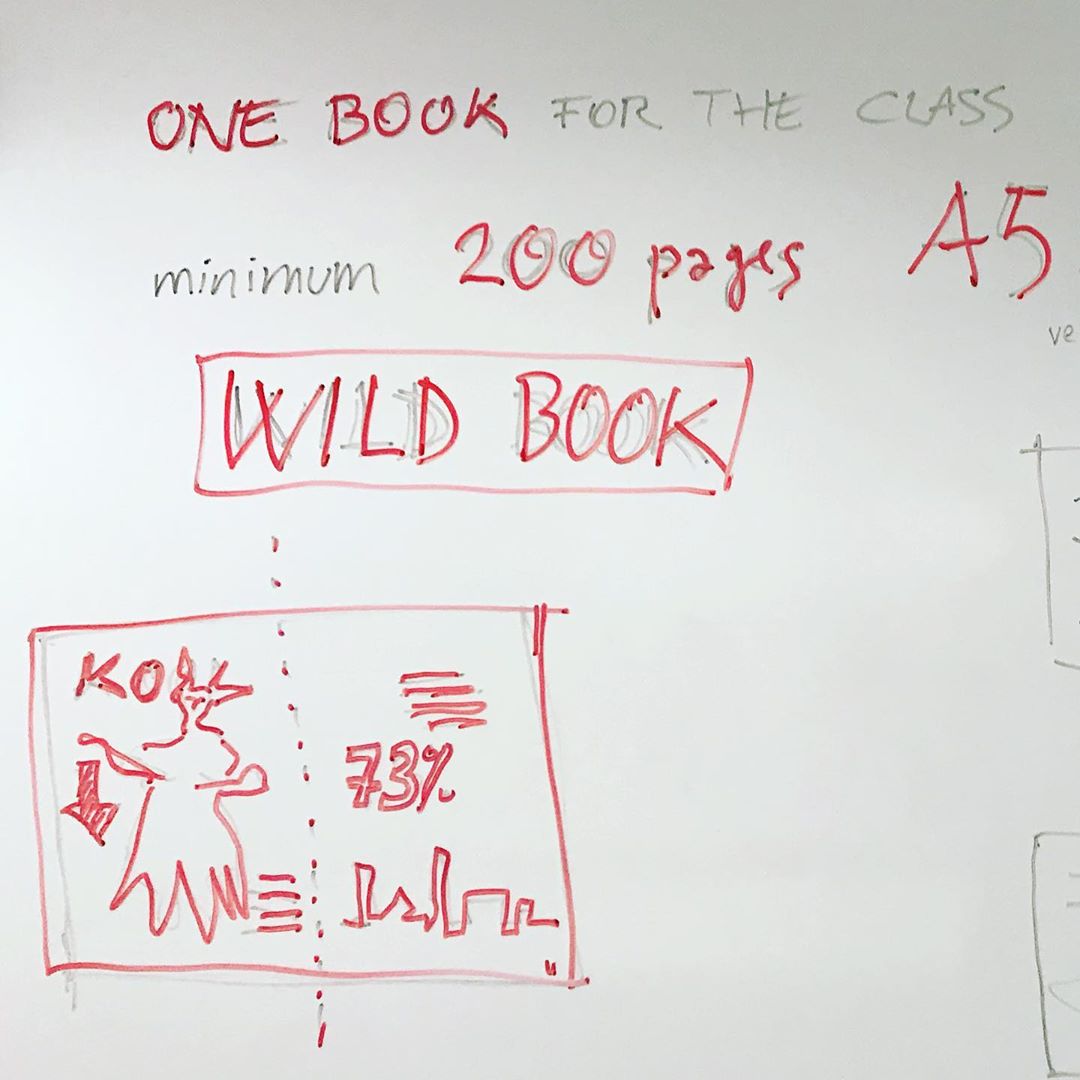 ONE BOOK FOR THE CLASS
A5
minimum 200 pages
ve
WILD BOOK
KO
73%